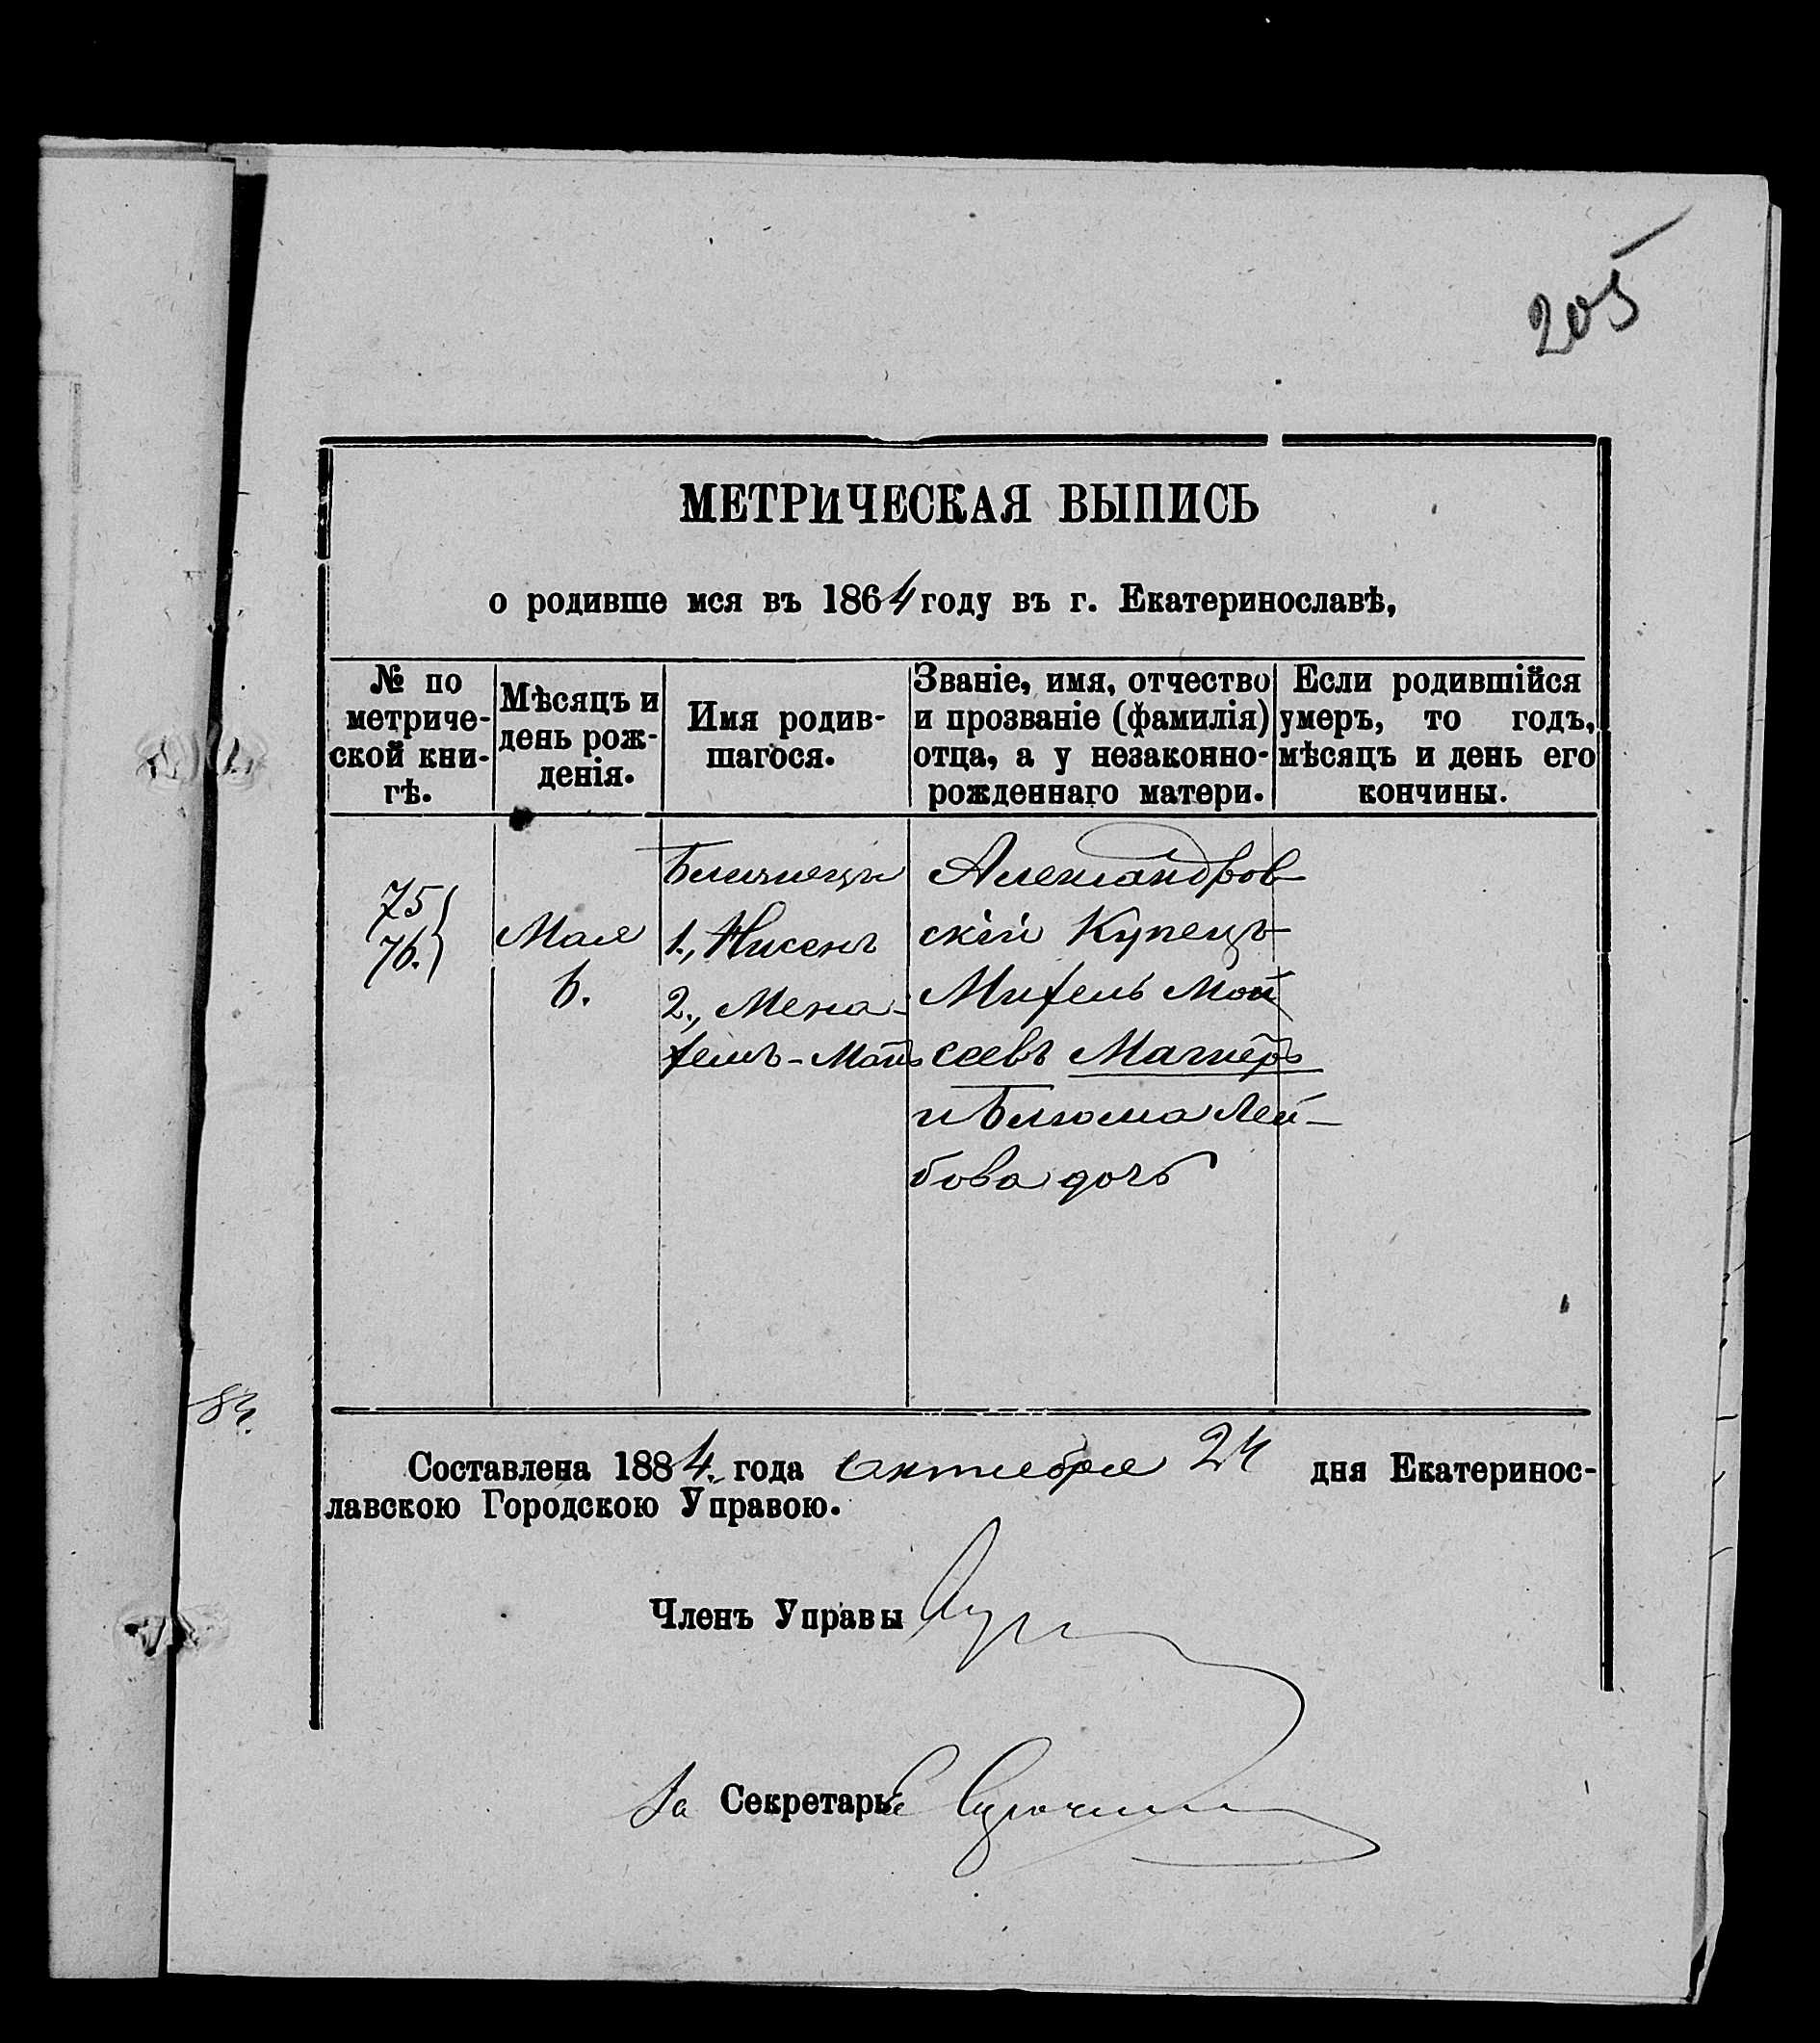 205
МЕТРИЧЕСКАЯ ВЫПИСЬ
о родивше мся въ 1864 году въ г. Екатеринославѣ,
№ по метриче-ской кни-гѣ.
Мѣсяцъ и день рож-денія.
Имя родив-шагося.
Званіе, имя, отчество и прозваніе (фамилія) отца, а у незаконно-рожденнаго матери.
Если родившійся умеръ, то годъ, мѣсяцъ и день его кончины.
75
76.
Мая
6.
Близнецы
1., Нисенъ
2., Мена-
хемъ-Манъ
Александров
скій Купецъ
Михель Мой
сеевъ Магнеръ
и Блюма Лей-
бова дочь
Составлена 1884. года Октября 24 дня Екатеринос-
лавскою Городскою Управою.
Членъ Управы
За Секретаря